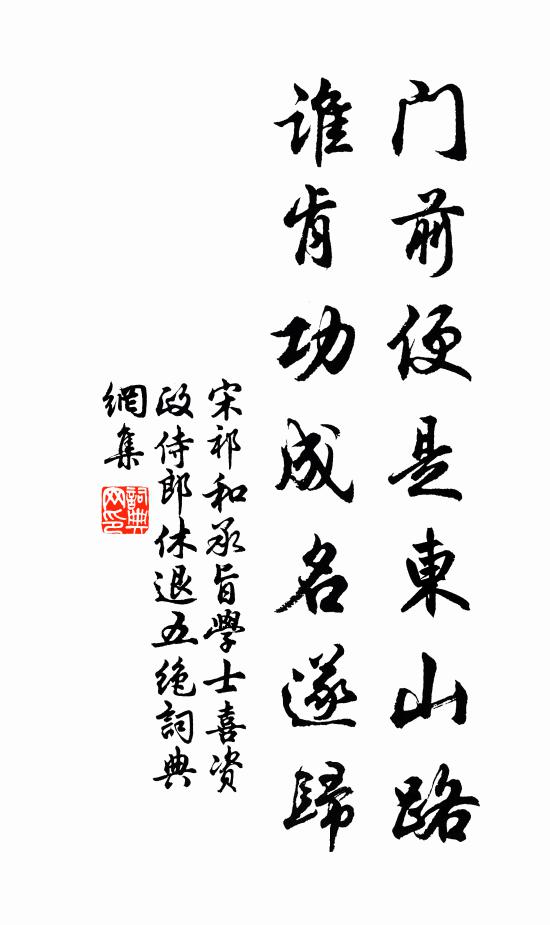 门前便是東山路
誰肯功成名遂歸
宋祁和承旨學士喜资
政侍郎休退五绝詞典
網集
詞典
网印